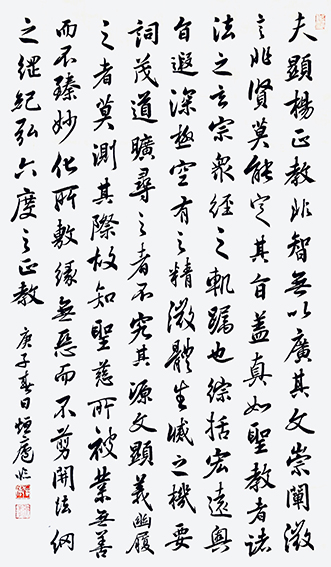 夫顯楊正教非智無以廣其文崇闡微
言非賢莫能定其旨盖真如聖教者諸
法之玄宗衆經之軌躅也綜括宏遠奥
旨遐深極空有之精微體生滅之機要
詞茂道曠尋之者不究其源文顯義幽履
之者莫測其際故知聖慈所被業無善
而不臻妙化所敷緣無惡而不剪開法網
之綱紀弘六度之正教
庚子春日恒庵临